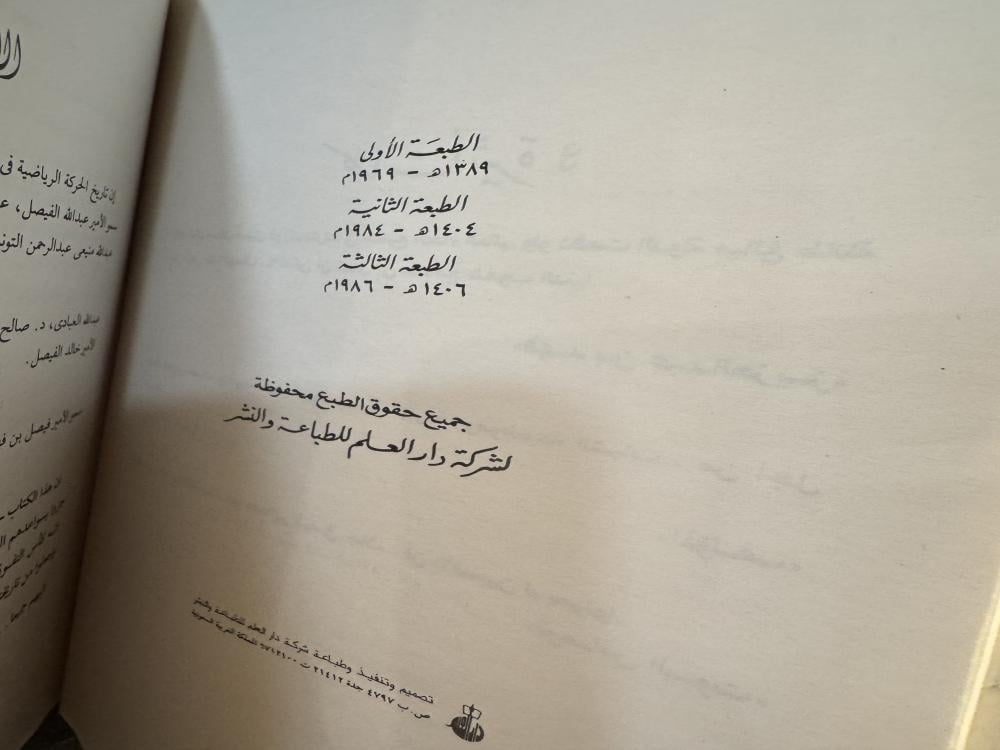 الطبعَة الأولى
١٣٨٩هـ - ١٩٦٩م
الطبعة الثانية
١٤٠٤هـ - ١٩٨٤م
الطبعة الثالثة
١٤٠٦هـ - ١٩٨٦م
جميع حقوق الطبع محفوظة
لشركة دار العلم للطباعة والنشر
تصميم وتنفيذ وطباعة شركة دار العلم للطباعة والنشر
ص.ب ٤٧٩٧ جدة ٢١٤١٢ ت المملكة العربية السعودية
إن تاريخ الحركة الرياضية فى
سمو الأمير عبدالله الفيصل،
عبدالله منيعى عبدالرحمن
عبدالله العبادى، د. صالح
الأمير خالد الفيصل.
سمو الأمير فيصل بن
ان هذا الكتاب